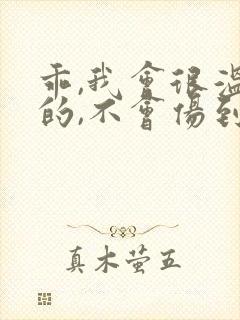 乖,我會很溫
的,不會傷到
真木萤五